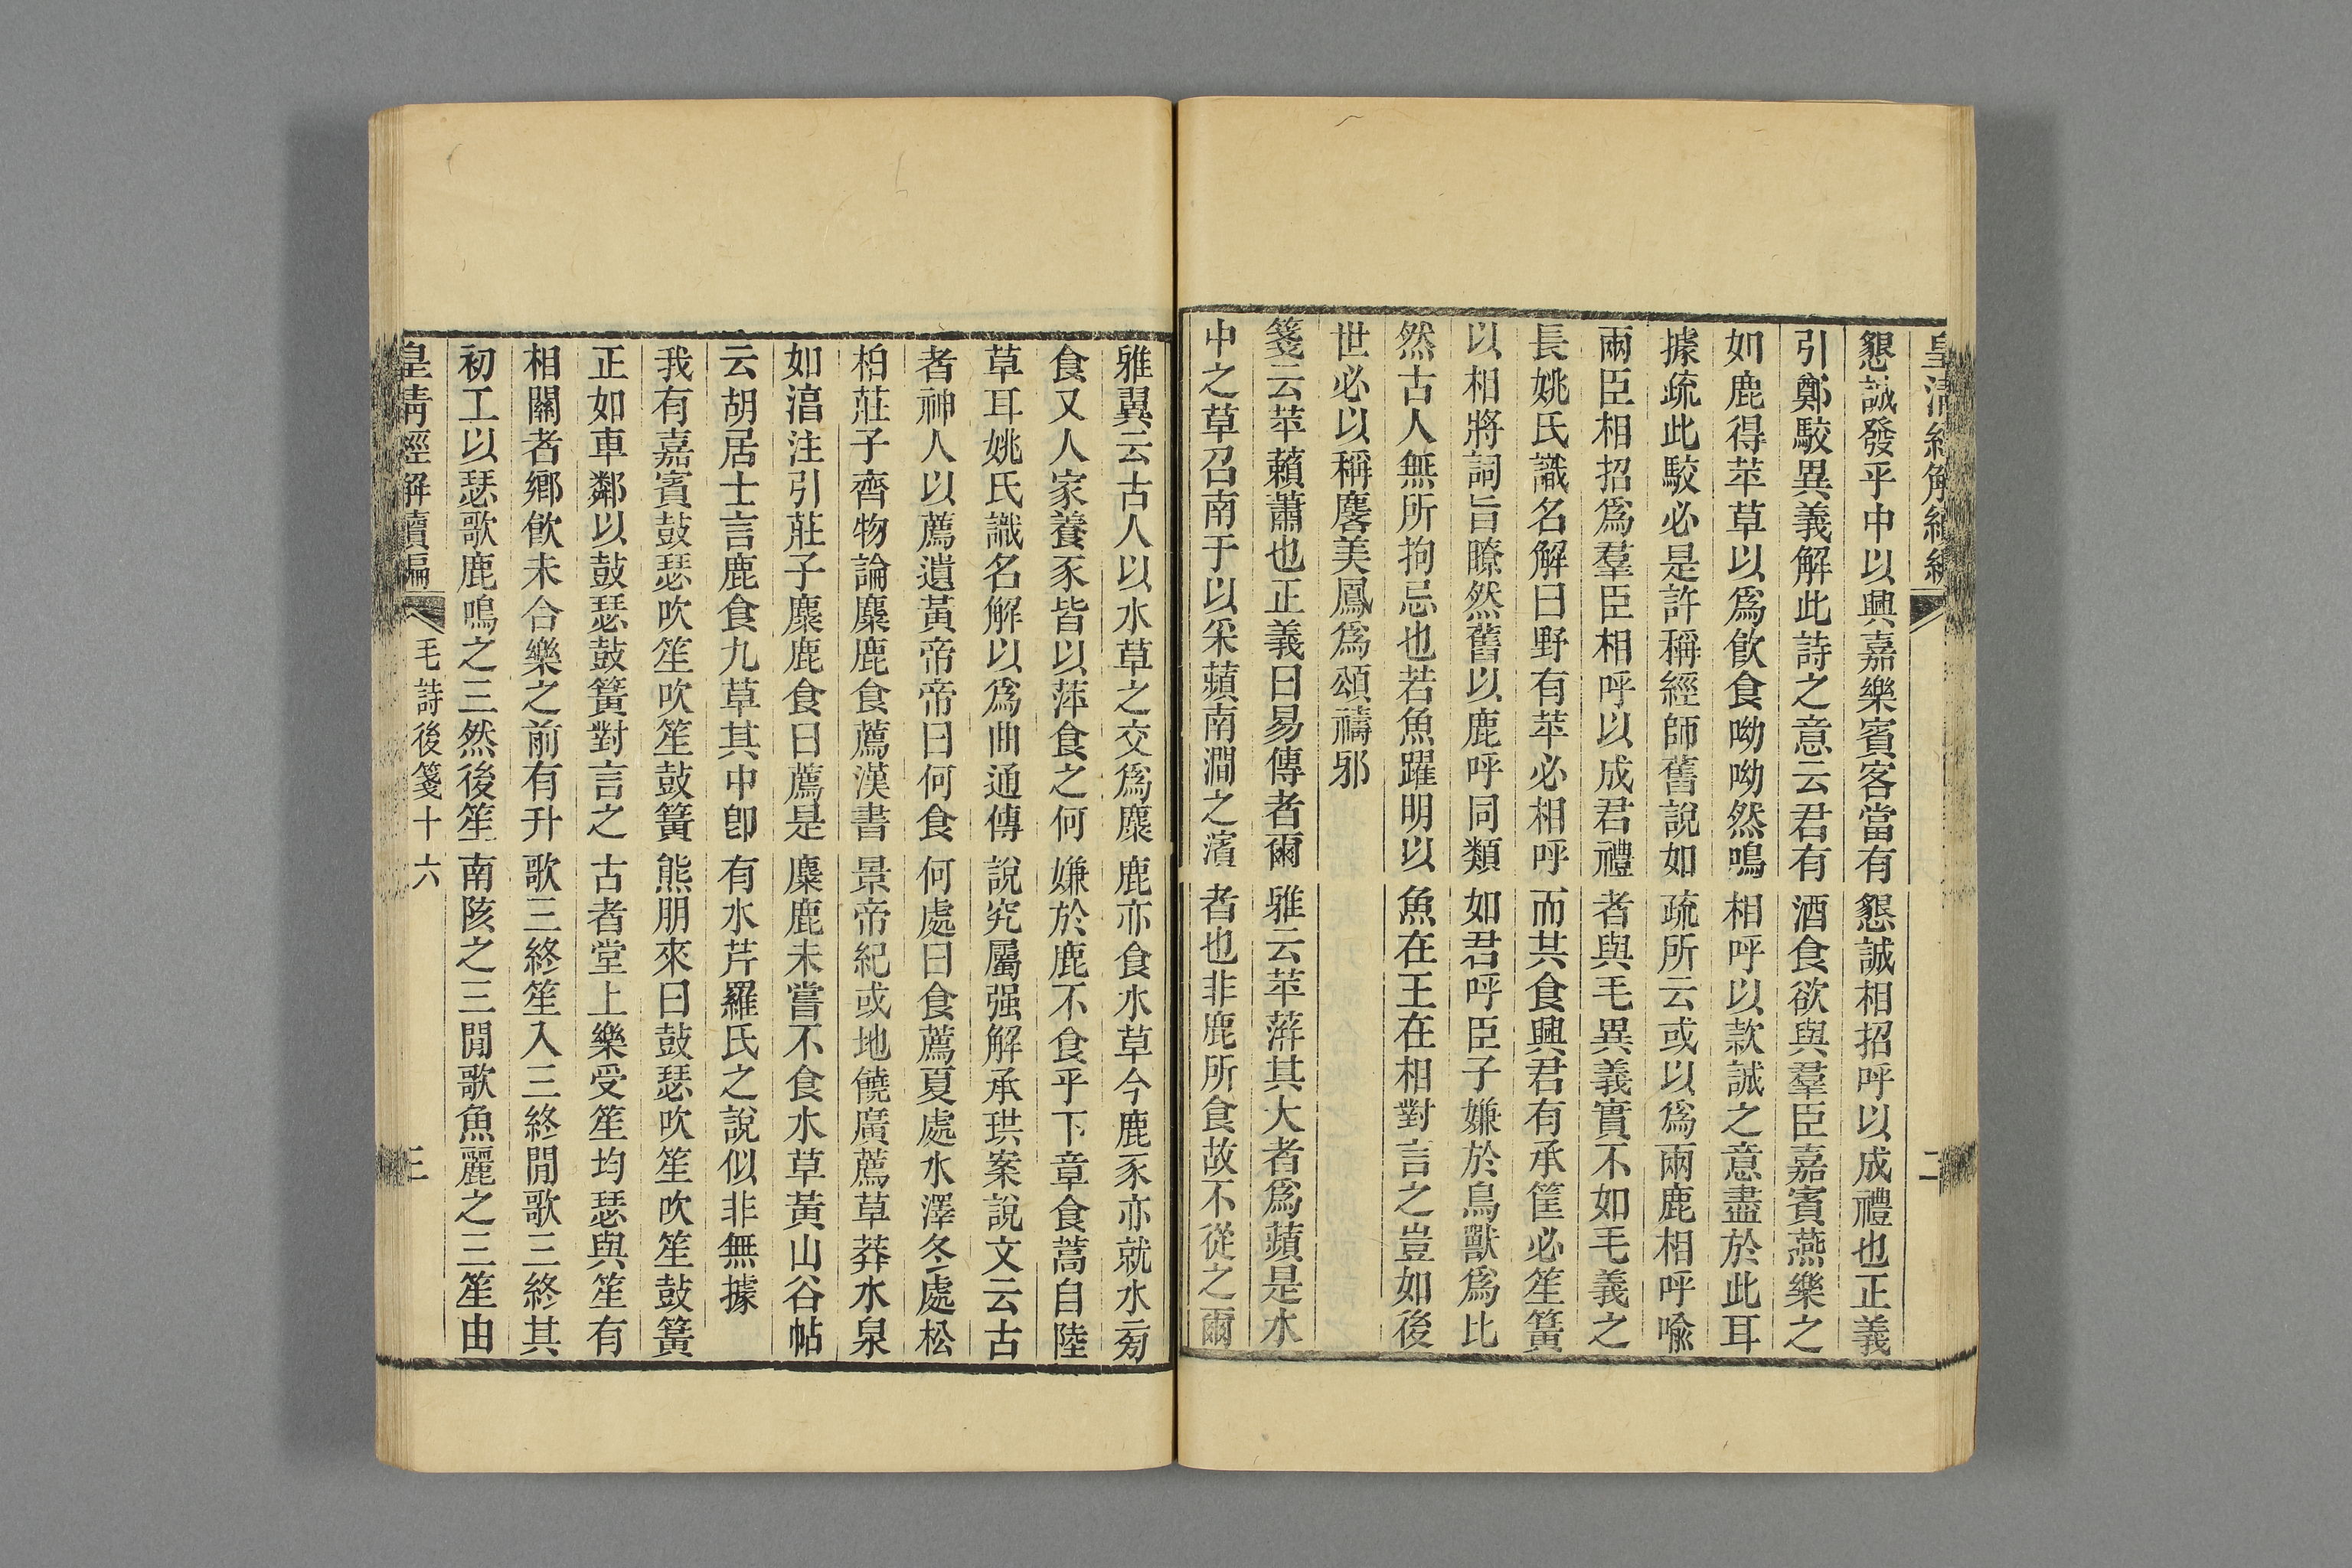 皇清經解續編 二
懇誠發乎中以興嘉樂賓客當有懇誠相招呼以成禮也正義
引鄭駮異義解此詩之意云君有酒食欲與羣臣嘉賓燕樂之
如鹿得苹草以爲飮食呦呦然鳴相呼以款誠之意盡於此耳
據疏此駮必是許稱經師舊說如疏所云或以爲兩鹿相呼喩
兩臣相招爲羣臣相呼以成君禮者與毛異義實不如毛義之
長姚氏識名解曰野有苹必相呼而共食興君有承筐必笙簧
以相將詞旨瞭然舊以鹿呼同類如君呼臣子嫌於鳥獸爲比
然古人無所拘忌也若魚躍明以魚在王在相對言之豈如後
世必以稱麐美鳳爲頌禱邪
箋云苹藾蕭也正義曰易傳者爾雅云苹蓱其大者爲蘋是水
中之草召南于以采蘋南澗之濱者也非鹿所食故不從之爾
雅翼云古人以水草之交爲麋鹿亦食水草今鹿豕亦就水㫄
食又人家養豕皆以萍食之何嫌於鹿不食乎下章食蒿自陸
草耳姚氏識名解以爲曲通傳說究屬强解承珙案說文云古
者神人以薦遺黃帝帝曰何食何處曰食薦夏處水澤冬處松
柏莊子齊物論麋鹿食薦漢書景帝紀或地饒廣薦草莽水泉
如湻注引莊子麋鹿食曰薦是麋鹿未嘗不食水草黃山谷帖
云胡居士言鹿食九草其中卽有水芹羅氏之說似非無據
我有嘉賓鼓瑟吹笙吹笙鼓簧熊朋來曰鼓瑟吹笙吹笙鼓簧
正如車鄰以鼓瑟鼓簧對言之古者堂上樂受笙均瑟與笙有
相關者鄉飮未合樂之前有升歌三終笙入三終閒歌三終其
初工以瑟歌鹿鳴之三然後笙南陔之三閒歌魚麗之三笙由
皇清經解續編 毛詩後箋十六 三